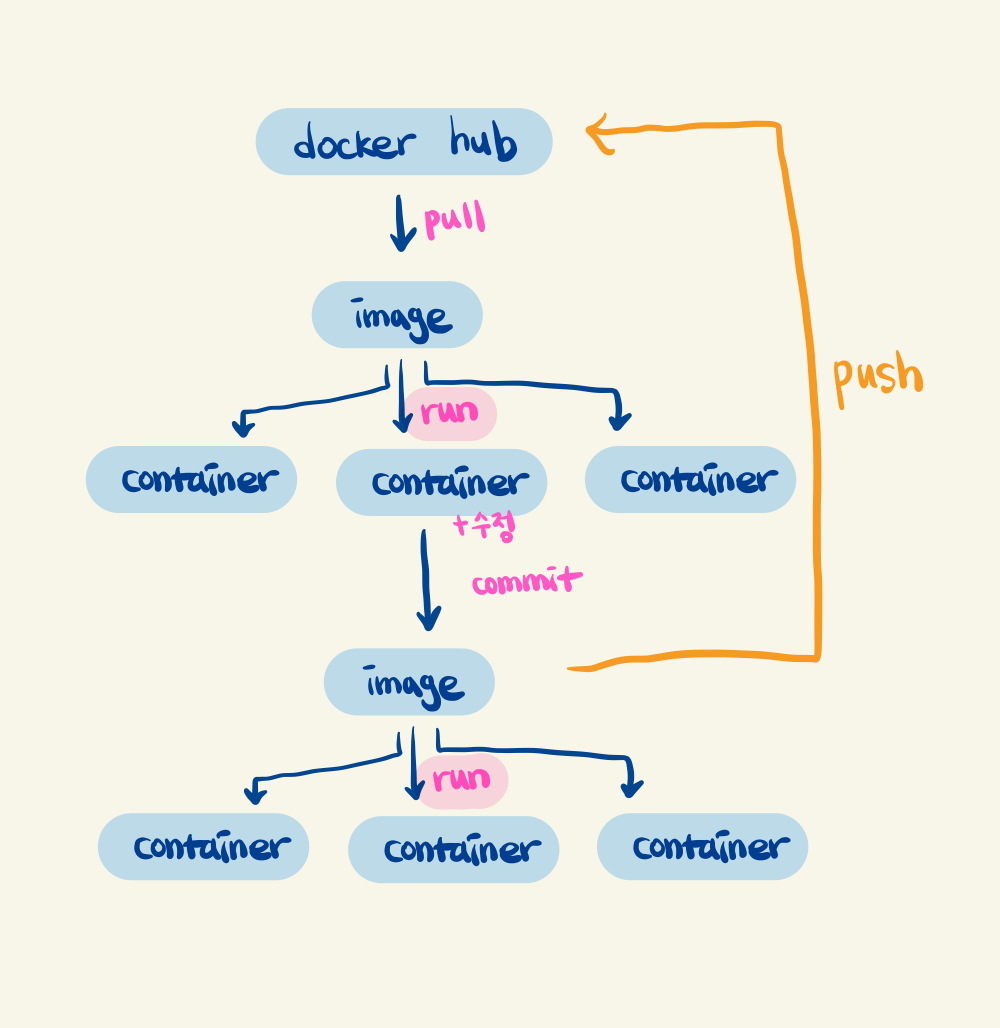 docker hub
pull
image
push
run
container container container
+수정
commit
image
run
container container container